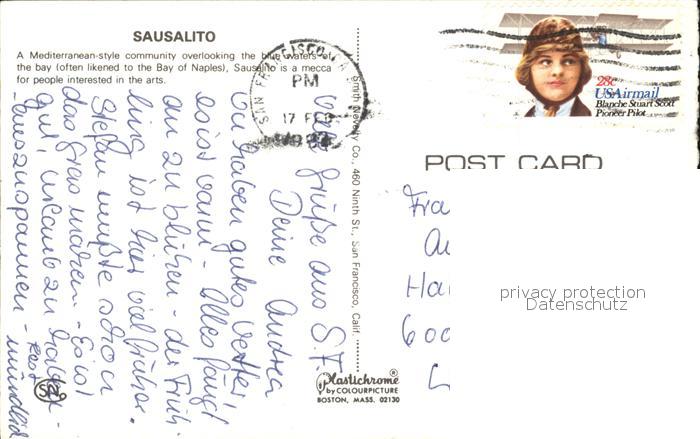 SAUSALITO
A Mediterranean-style community overlooking the blue waters of
the bay (often likened to the Bay of Naples), Sausalito is a mecca
for people interested in the arts.
SAN FRANCISCO, CA
PM
17 FEB
28c
USAirmail
Blanche Stuart Scott
Pioneer Pilot
POST CARD
Smith Novelty Co., 460 Ninth St., San Francisco, Calif.
Wir haben gutes Wetter!
es ist warm - alles fängt
an zu blühen - der Früh-
ling ist hier viel früher.
Stefan mußte schon
das Gras mähen - Es ist
gut, Urlaub zu haben -
auszuspannen - mündlich
Rest
Viele Grüße aus S.F.
Deine Andrea
Fra
Ha
600
privacy protection
Datenschutz
Plastichrome®
by COLOURPICTURE
BOSTON, MASS. 02130